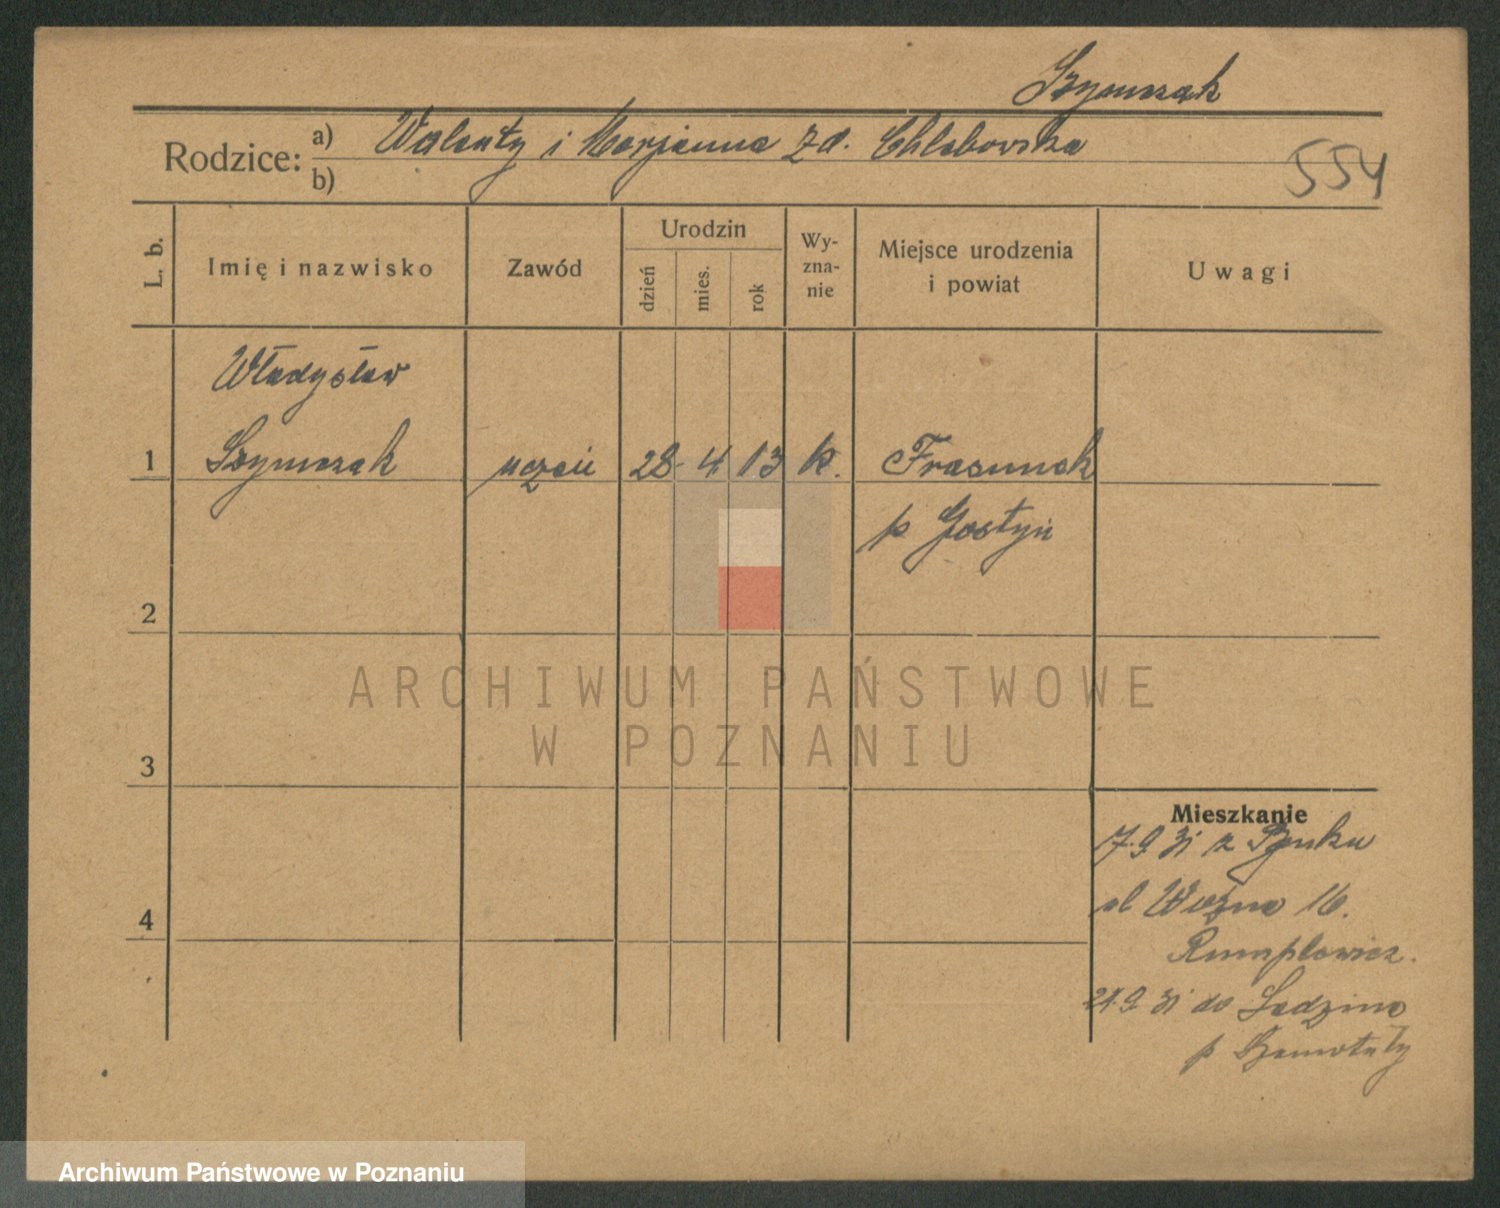 Szymczak
Rodzice: a) Walenty i Marjanna z d. Chlebowska
b)
554
L. b.
Imię i nazwisko
Zawód
Urodzin
dzień
mies.
rok
Wy-
zna-
nie
Miejsce urodzenia
i powiat
Uwagi
Władysław
1 Szymczak uczeń 28 4 13 k. Frasunek
p Gostyń
2
3
4
ARCHIWUM PAŃSTWOWE
W POZNANIU
Mieszkanie
17.9 31 z Buku
ul Woźna 16.
Rumplowicz.
21.9 31 do
p Szamotuły
Archiwum Państwowe w Poznaniu